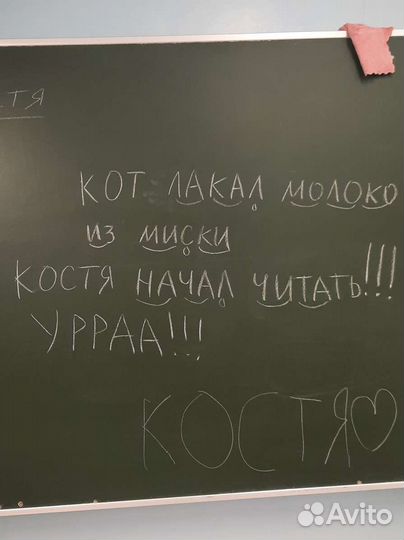 ТЯ
КОТ ЛАКАЛ МОЛОКО
ИЗ МИСКИ
КОСТЯ НАЧАЛ ЧИТАТЬ!!!
УРРАА!!!
КОСТЯ♡
Avito